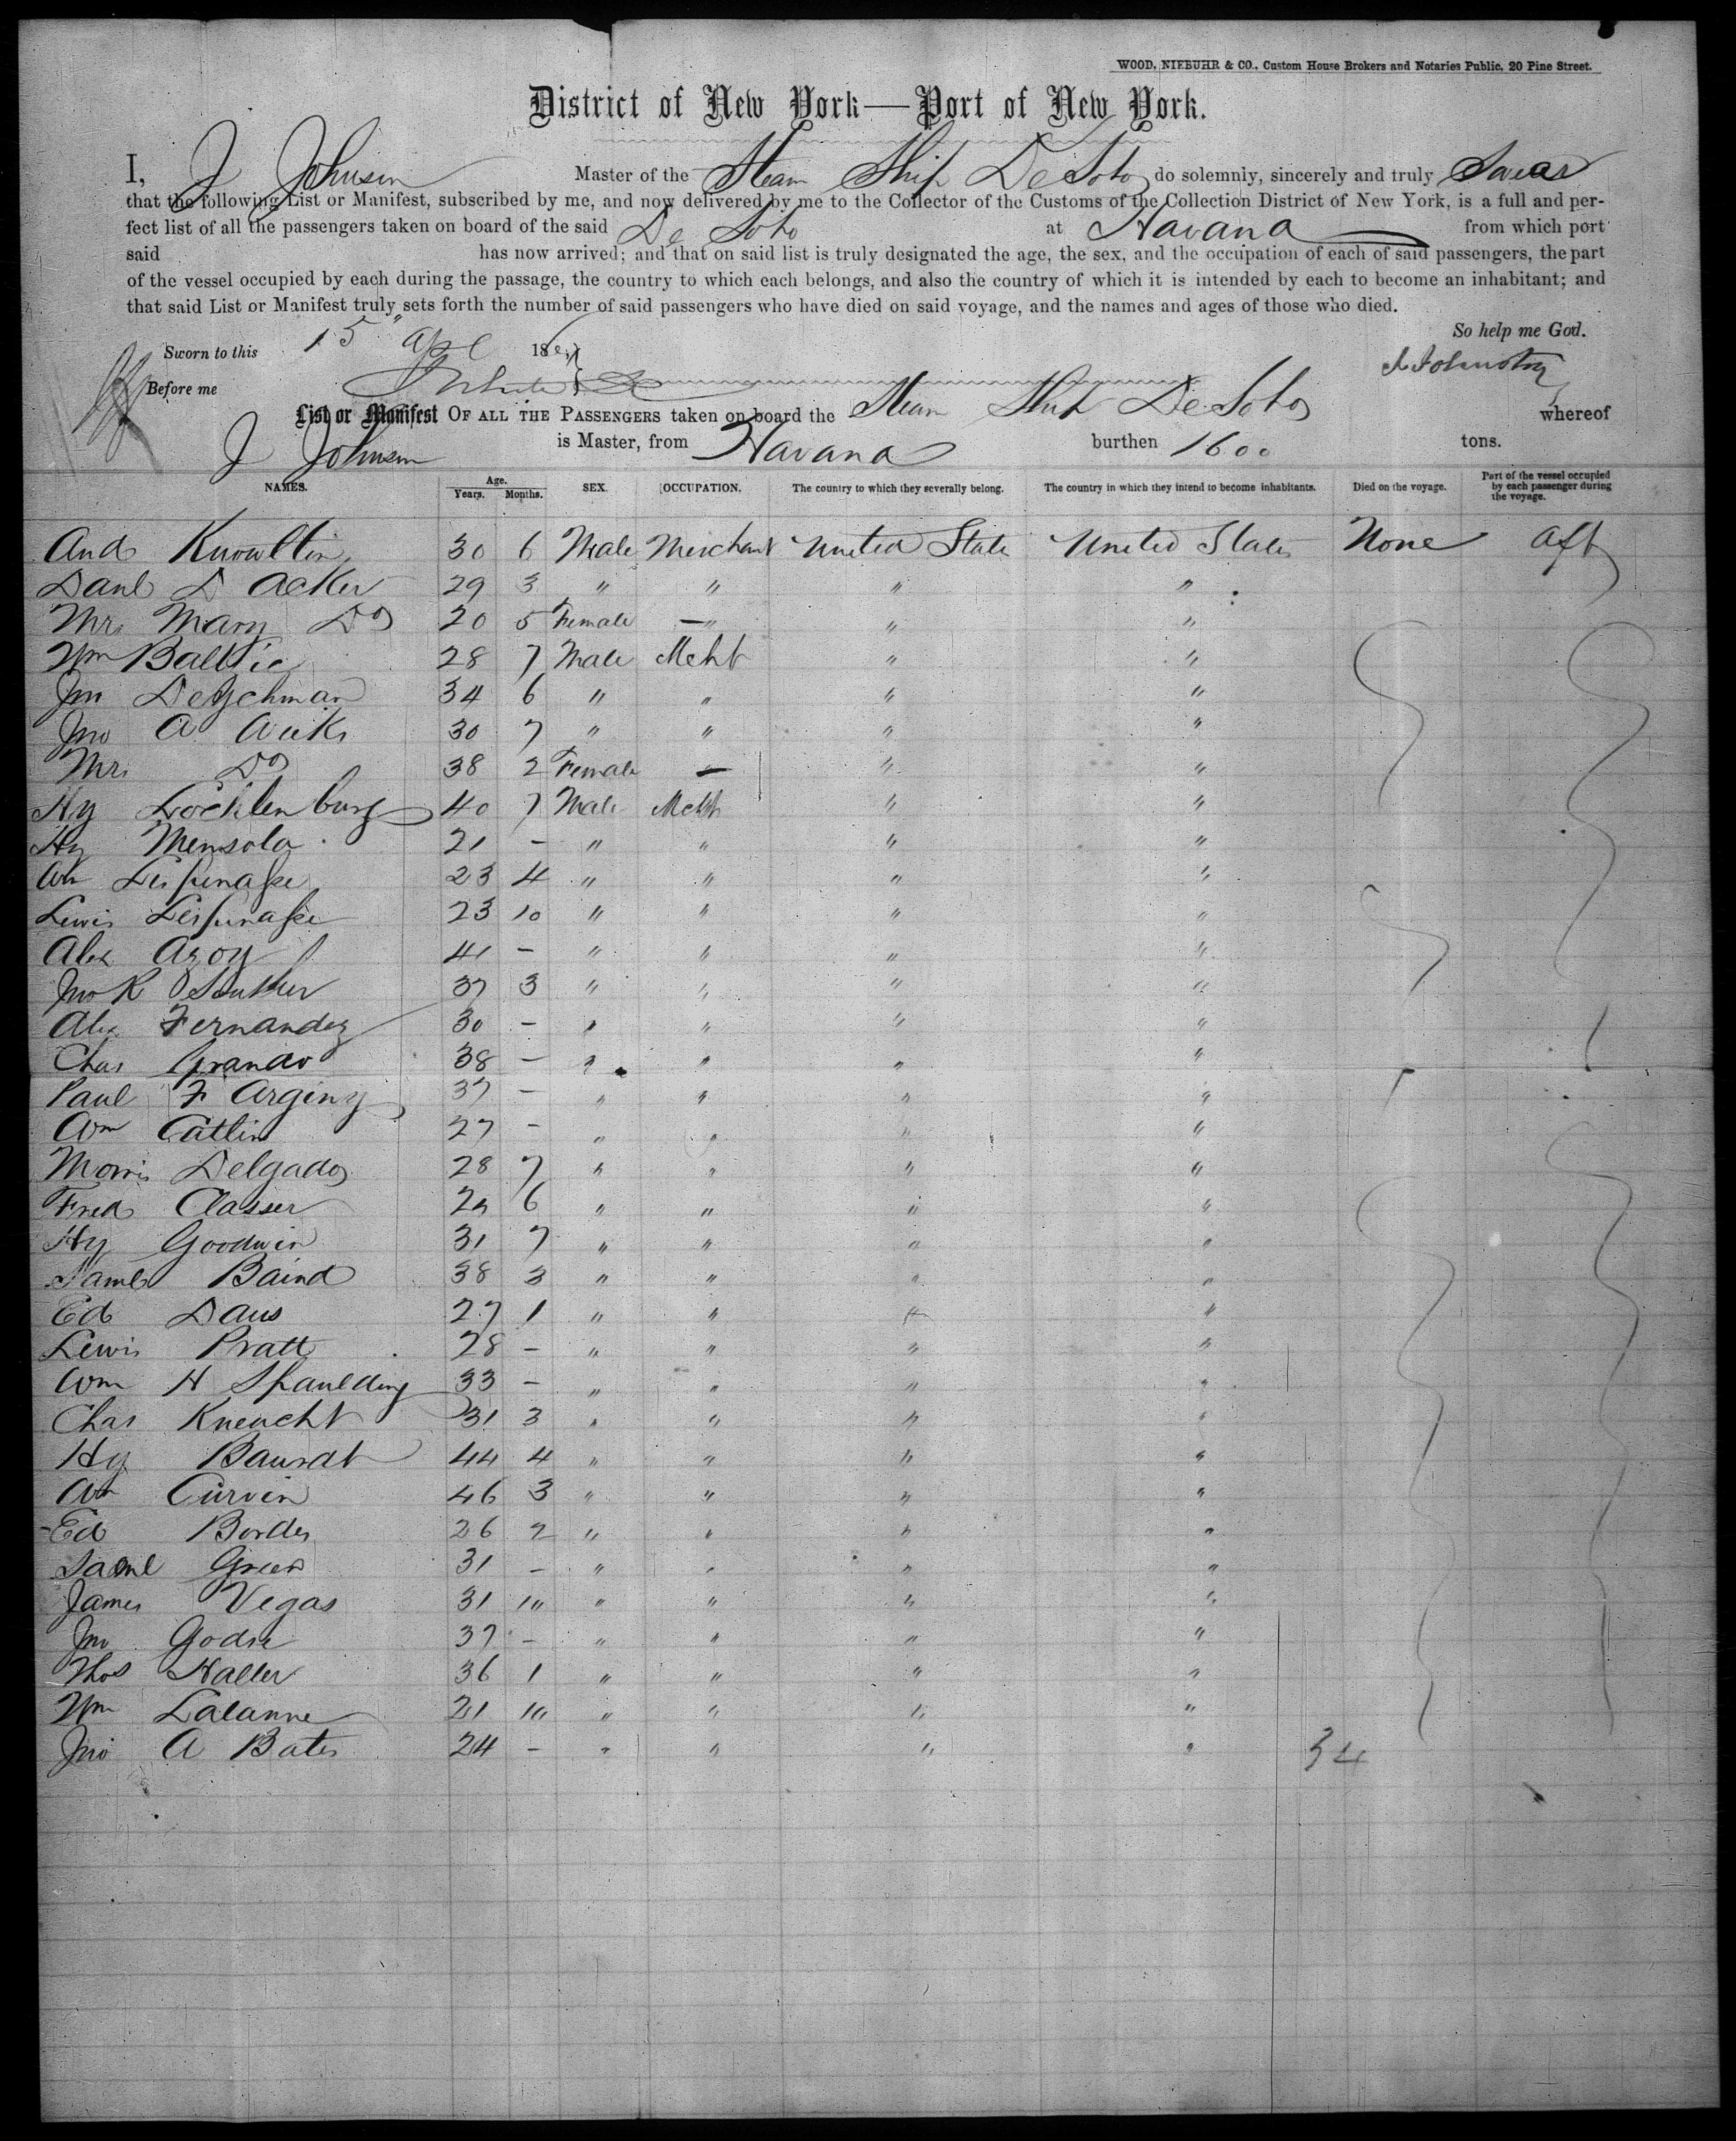 WOOD, NIEBUHR & CO., Custom House Brokers and Notaries Public, 20 Pine Street.
District of New York—Port of New York.
I, J Johnson Master of the Steam Ship De Soto do solemnly, sincerely and truly Swear
that the following List or Manifest, subscribed by me, and now delivered by me to the Collector of the Customs of the Collection District of New York, is a full and per-
fect list of all the passengers taken on board of the said De Soto at Havana from which port
said has now arrived; and that on said list is truly designated the age, the sex, and the occupation of each of said passengers, the part
of the vessel occupied by each during the passage, the country to which each belongs, and also the country of which it is intended by each to become an inhabitant; and
that said List or Manifest truly sets forth the number of said passengers who have died on said voyage, and the names and ages of those who died.
So help me God.
Sworn to this 15" Apl 186
J Johnston
Before me
List or Manifest OF ALL THE PASSENGERS taken on board the Steam Ship De Soto whereof
J Johnson is Master, from Havana burthen 1600 tons.
NAMES. Age. Years. Months. SEX. OCCUPATION. The country to which they severally belong. The country in which they intend to become inhabitants. Died on the voyage. Part of the vessel occupied by each passenger during the voyage.
And Knowlton 30 6 Male Merchant United State United States None aft
Danl D Acker 29 3 " " " "
Mrs Mary Do 20 5 Female — " " "
Wm Baltic 28 7 Male Mcht " "
Jno 34 6 " " " "
Jno A Weeks 30 7 " " " "
Mrs Do 38 2 Female — " "
Hy Locklenburg 40 7 Male Mcht " "
Hy Mensola 21 - " " " "
Wm Lespinasse 23 4 " " " "
Lewis Lespinasse 23 10 " " " "
Alex Agoy 41 - " " " "
Jno R Souther 37 3 " " " "
Alex Fernandez 30 - " " " "
Chas Grando 38 - " " " "
Paul F Arginy 37 - " " " "
Wm Catlin 27 - " " " "
Morris Delgado 28 7 " " " "
Fred Classer 29 6 " " " "
Hy Goodwin 31 7 " " " "
Saml Baind 38 3 " " " "
Ed Daus 27 1 " " " "
Lewis Pratt 28 - " " " "
Wm H Spaulding 33 - " " " "
Chas Kneucht 31 3 " " " "
Hy Baurdt 44 4 " " " "
Wm Curvin 46 3 " " " "
Ed Borden 26 2 " " " "
Saml Green 31 - " " " "
James Vegas 31 10 " " " "
Jno Godse 37 - " " " "
Thos Haller 36 1 " " " "
Wm Lalanne 21 10 " " " "
Jno A Bates 24 - " " " "
34